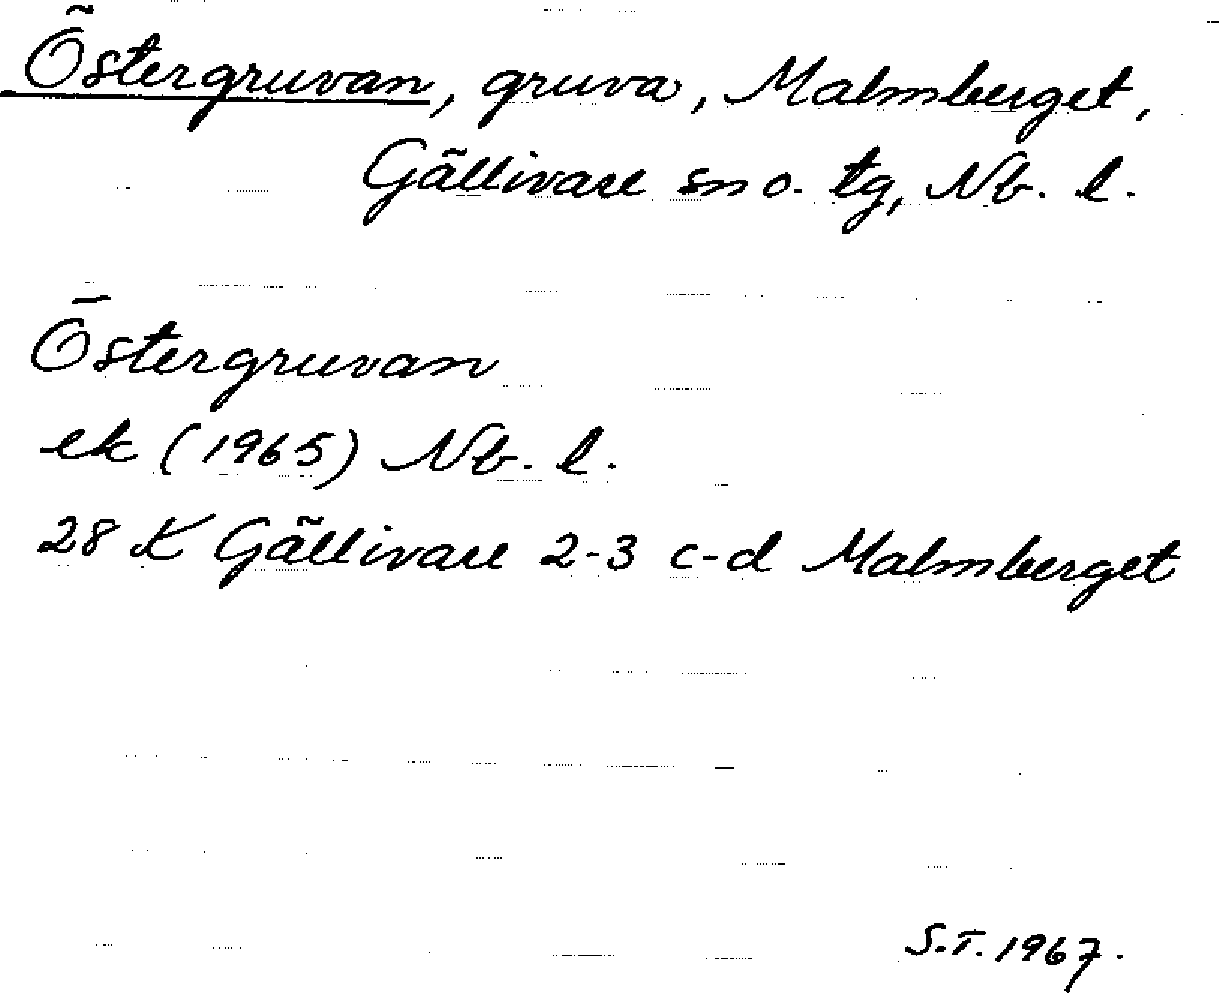 Östergruvan, gruva, Malmberget,
Gällivare sn o. tg, Nb. l.
Östergruvan
ek (1965) Nb. l.
28 K Gällivare 2-3 c-d Malmberget
S.T. 1967.